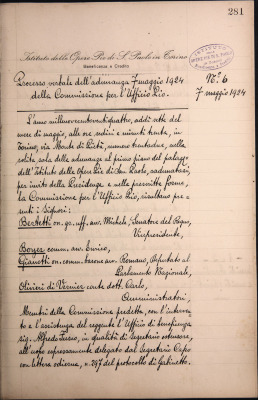 281
Istituto delle Opere Pie di S. Paolo in Torino
Beneficenza e Credito
Processo verbale dell'adunanza 7 maggio 1924
della Commissione per l'Ufficio Pio.
N.° 6
7 maggio 1924
L'anno millenovecentoventiquattro, addì sette del
mese di maggio, alle ore sedici e minuti trenta, in
Torino, via Monte di Pietà, numero trentadue, nella
solita sala delle adunanze al primo piano del palazzo
dell'Istituto delle Opere Pie di San Paolo, adunatasi,
per invito della Presidenza e nelle prescritte forme,
la Commissione per l'Ufficio Pio, risultano pre-
senti i Signori:
Bertetti on. gr. uff. avv. Michele, Senatore del Regno,
Vicepresidente,
Boyer comm. avv. Enrico,
Gianotti on. comm. barone avv. Romano, Deputato al
Parlamento Nazionale,
Olivieri di Vernier conte dott. Carlo,
Amministratori,
Membri della Commissione predetta, con l'interven-
to e l'assistenza del reggente l'Ufficio di beneficenza
sig. Alfredo, in qualità di Segretario estensore,
all'uopo espressamente delegato dal Segretario Capo
con lettera odierna, n. 297 del protocollo di Gabinetto.